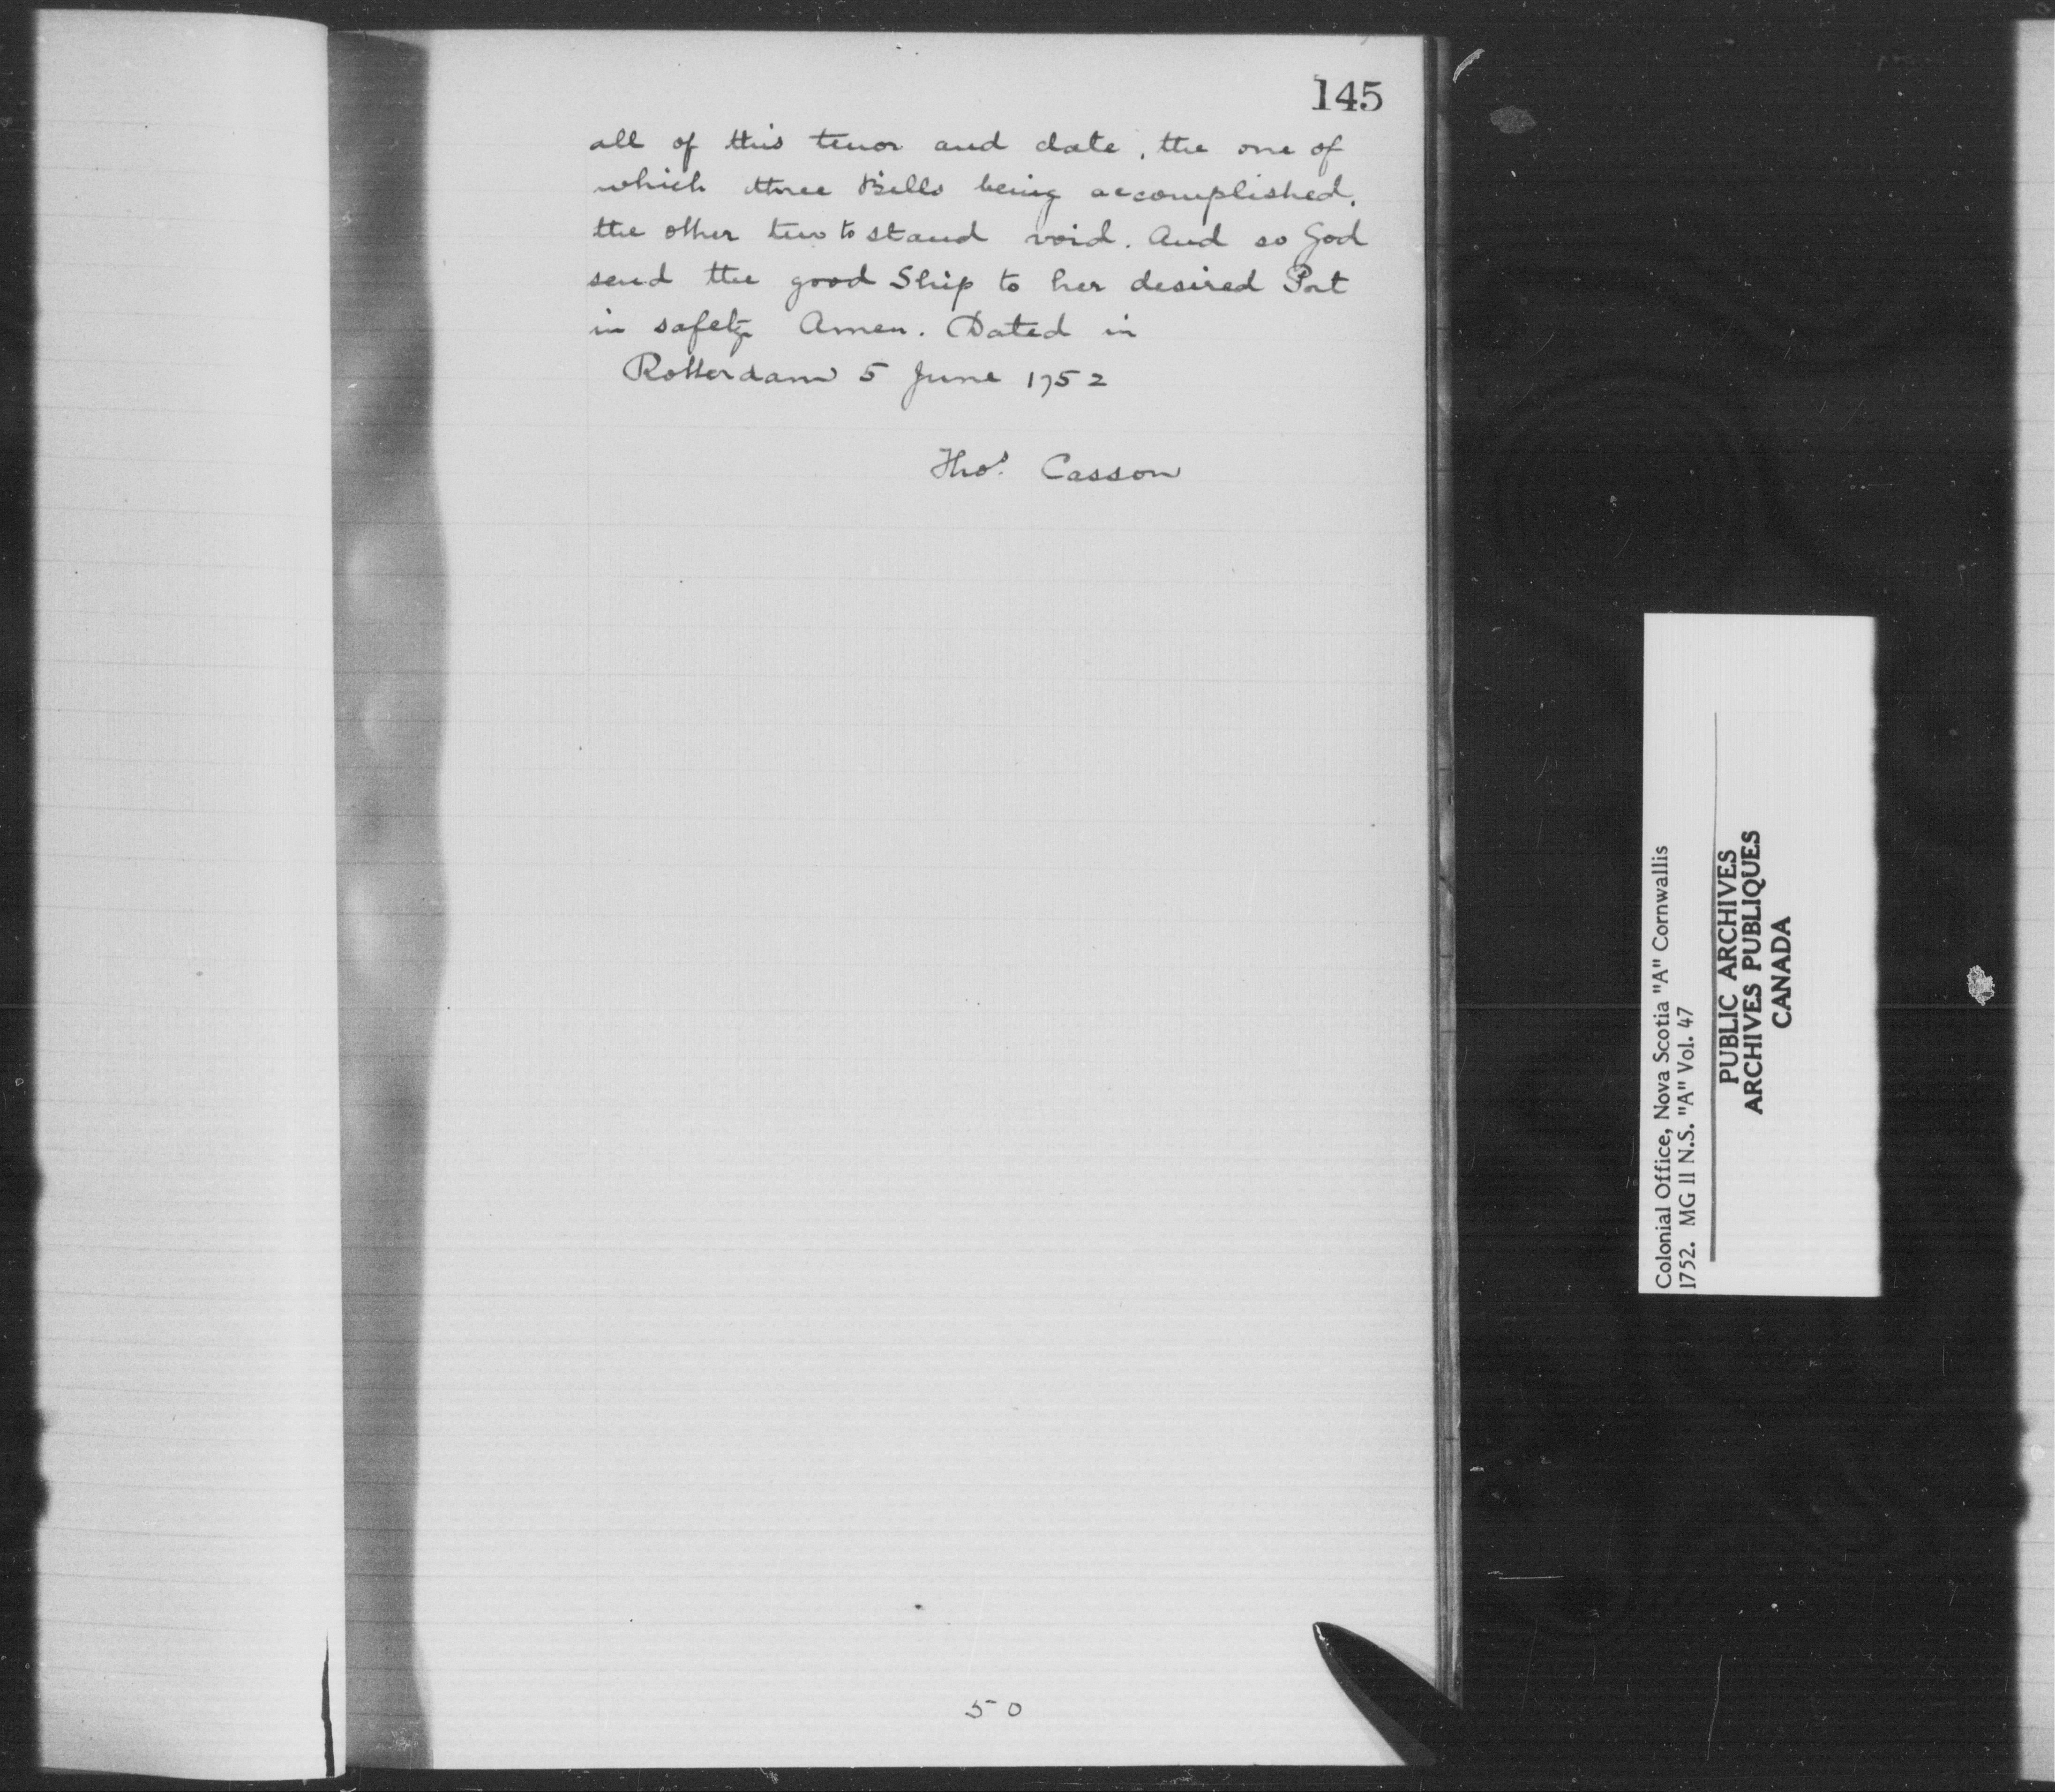 145
all of this tenor and date, the one of
which three Bills being accomplished,
the other two to stand void. And so God
send the good Ship to her desired Port
in safety Amen. Dated in
Rotterdam 5 June 1752
Thos. Casson
50
Colonial Office, Nova Scotia "A" Cornwallis
1752. MG 11 N.S. "A" Vol. 47
PUBLIC ARCHIVES
ARCHIVES PUBLIQUES
CANADA